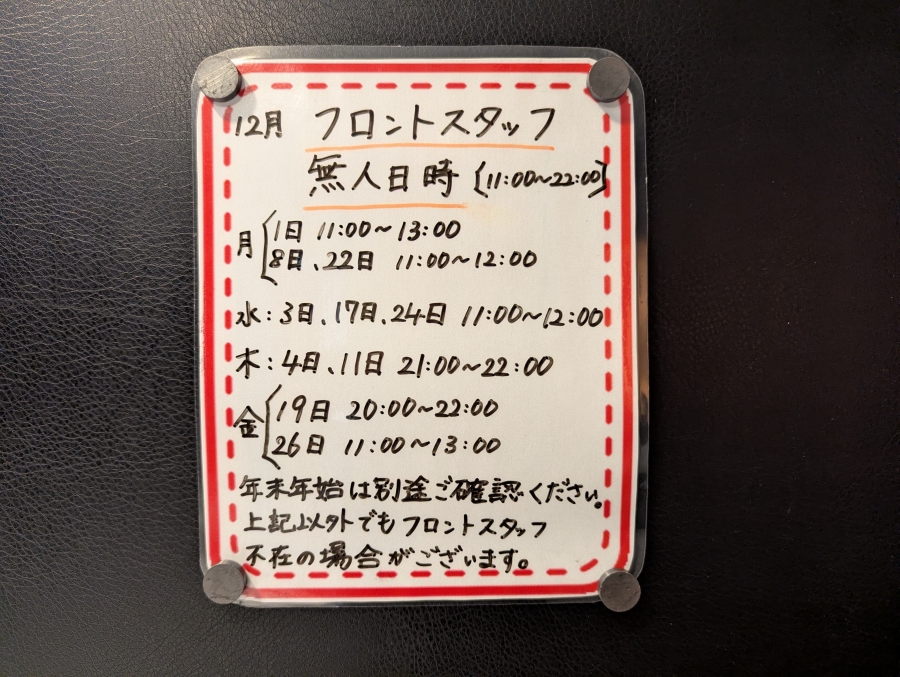 12月 フロントスタッフ
無人日時 [11:00~22:00]
月 1日 11:00~13:00
8日、22日 11:00~12:00
水:3日、17日、24日 11:00~12:00
木:4日、11日 21:00~22:00
金 19日 20:00~22:00
26日 11:00~13:00
年末年始は別途ご確認ください。
上記以外でもフロントスタッフ
不在の場合がございます。